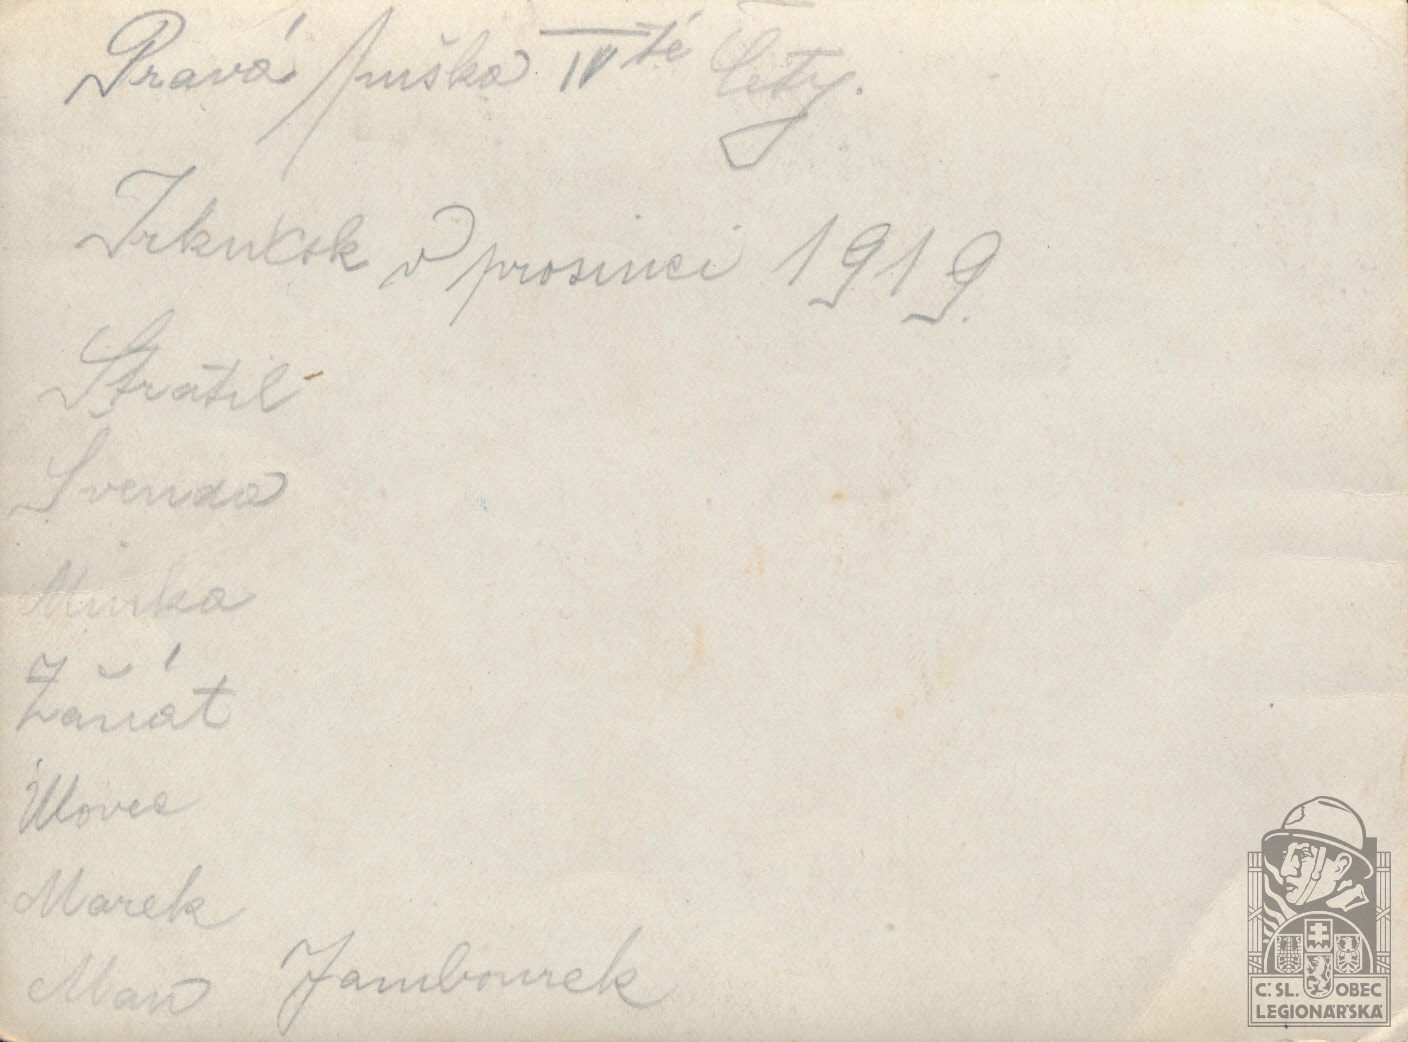 Pravá puška IV té čety.
Irkutsk v prosinci 1919.
Stratil
Švenda
Minka
Zaňát
Marek
Man Jambourek
Č. SL. OBEC
LEGIONÁŘSKÁ